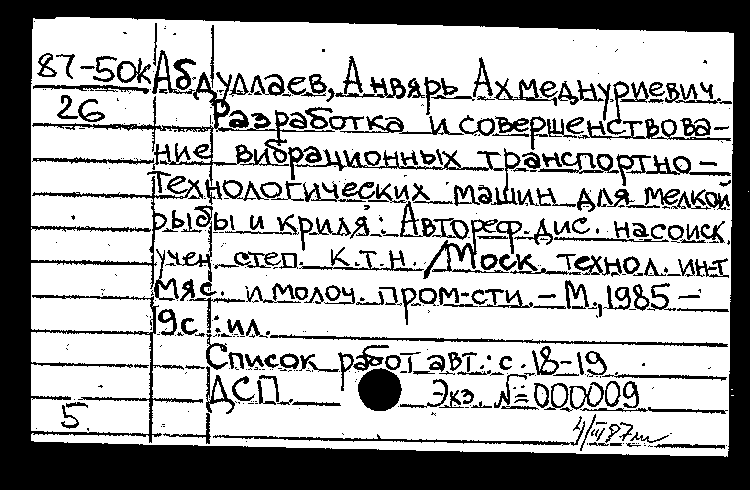 87-50к Абдуллаев, Анвярь Ахмеднуриевич
26 Разработка и совершенствова-
ние вибрационных транспортно-
технологических машин для мелкой
рыбы и криля: Автореф. дис. на соиск.
учен. степ. к.т.н. / Моск. технол. ин-т
мяс. и молоч. пром-сти. - М., 1985 -
19с.: ил.
Список работ авт.: с. 18-19
ДСП. Экз. №=000009
5.
4/III 87